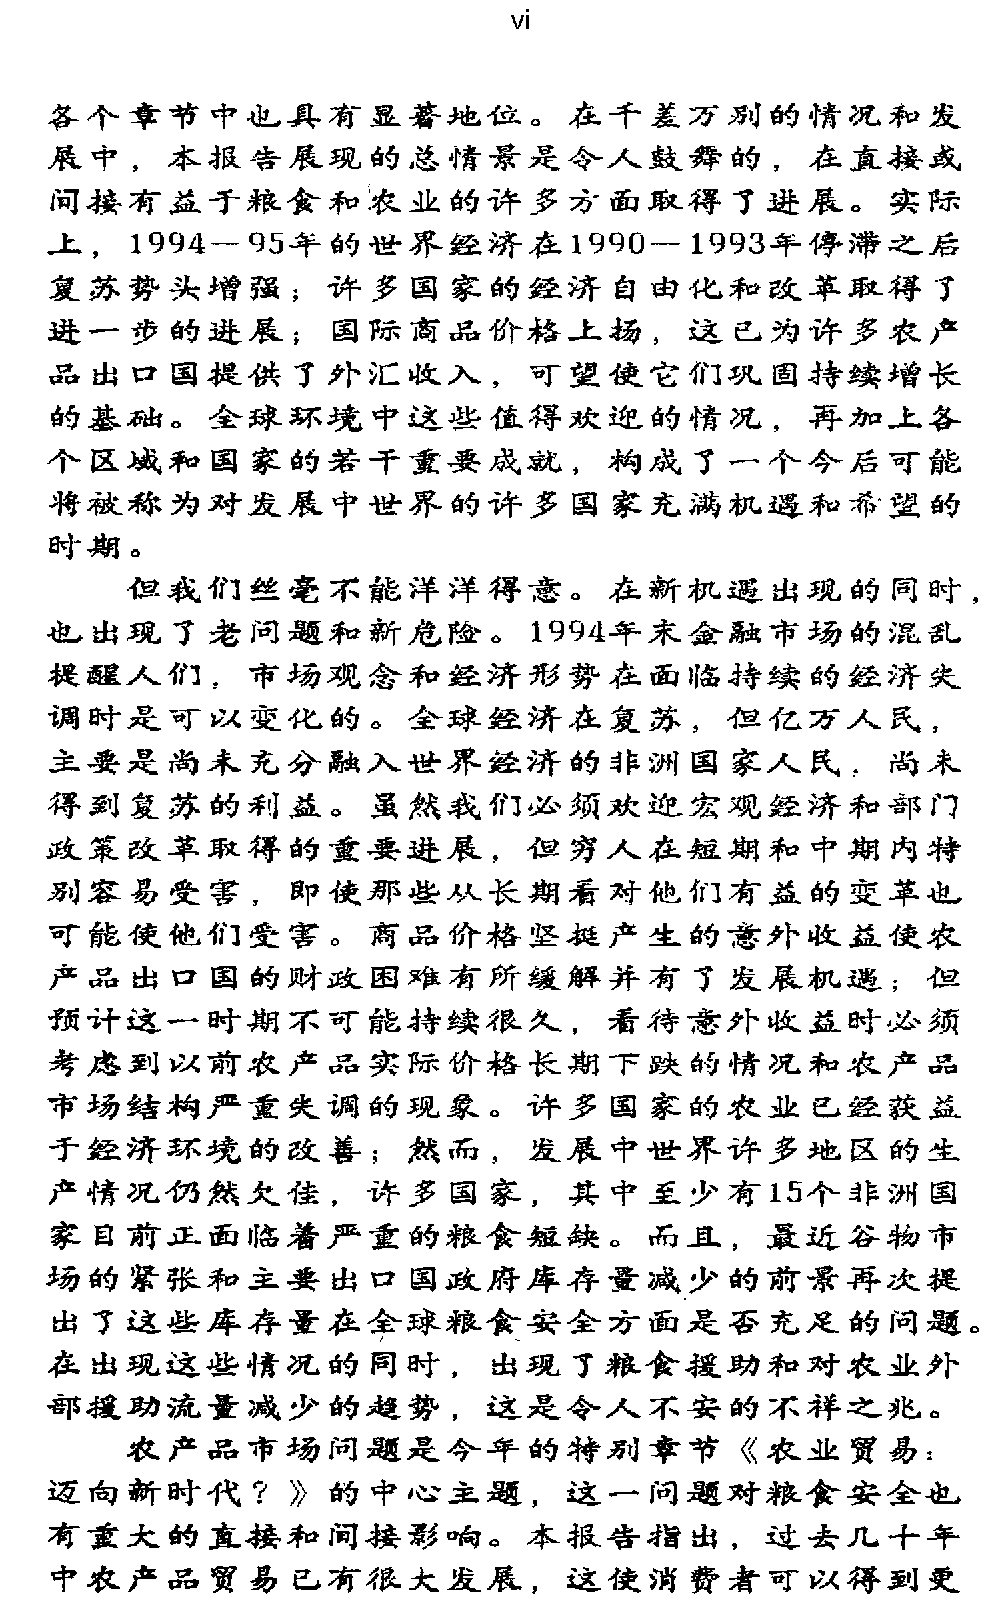 vi
各个章节中也具有显著地位。在千差万别的情况和发
展中，本报告展现的总情景是令人鼓舞的，在直接或
间接有益于粮食和农业的许多方面取得了进展。实际
上，1994—95年的世界经济在1990—1993年停滞之后
复苏势头增强；许多国家的经济自由化和改革取得了
进一步的进展；国际商品价格上扬，这已为许多农产
品出口国提供了外汇收入，可望使它们巩固持续增长
的基础。全球环境中这些值得欢迎的情况，再加上各
个区域和国家的若干重要成就，构成了一个今后可能
将被称为对发展中世界的许多国家充满机遇和希望的
时期。
但我们丝毫不能洋洋得意。在新机遇出现的同时，
也出现了老问题和新危险。1994年末金融市场的混乱
提醒人们，市场观念和经济形势在面临持续的经济失
调时是可以变化的。全球经济在复苏，但亿万人民，
主要是尚未充分融入世界经济的非洲国家人民，尚未
得到复苏的利益。虽然我们必须欢迎宏观经济和部门
政策改革取得的重要进展，但穷人在短期和中期内特
别容易受害，即使那些从长期看对他们有益的变革也
可能使他们受害。商品价格坚挺产生的意外收益使农
产品出口国的财政困难有所缓解并有了发展机遇；但
预计这一时期不可能持续很久，看待意外收益时必须
考虑到以前农产品实际价格长期下跌的情况和农产品
市场结构严重失调的现象。许多国家的农业已经获益
于经济环境的改善；然而，发展中世界许多地区的生
产情况仍然欠佳，许多国家，其中至少有15个非洲国
家目前正面临着严重的粮食短缺。而且，最近谷物市
场的紧张和主要出口国政府库存量减少的前景再次提
出了这些库存量在全球粮食安全方面是否充足的问题。
在出现这些情况的同时，出现了粮食援助和对农业外
部援助流量减少的趋势，这是令人不安的不祥之兆。
农产品市场问题是今年的特别章节《农业贸易：
迈向新时代？》的中心主题，这一问题对粮食安全也
有重大的直接和间接影响。本报告指出，过去几十年
中农产品贸易已有很大发展，这使消费者可以得到更